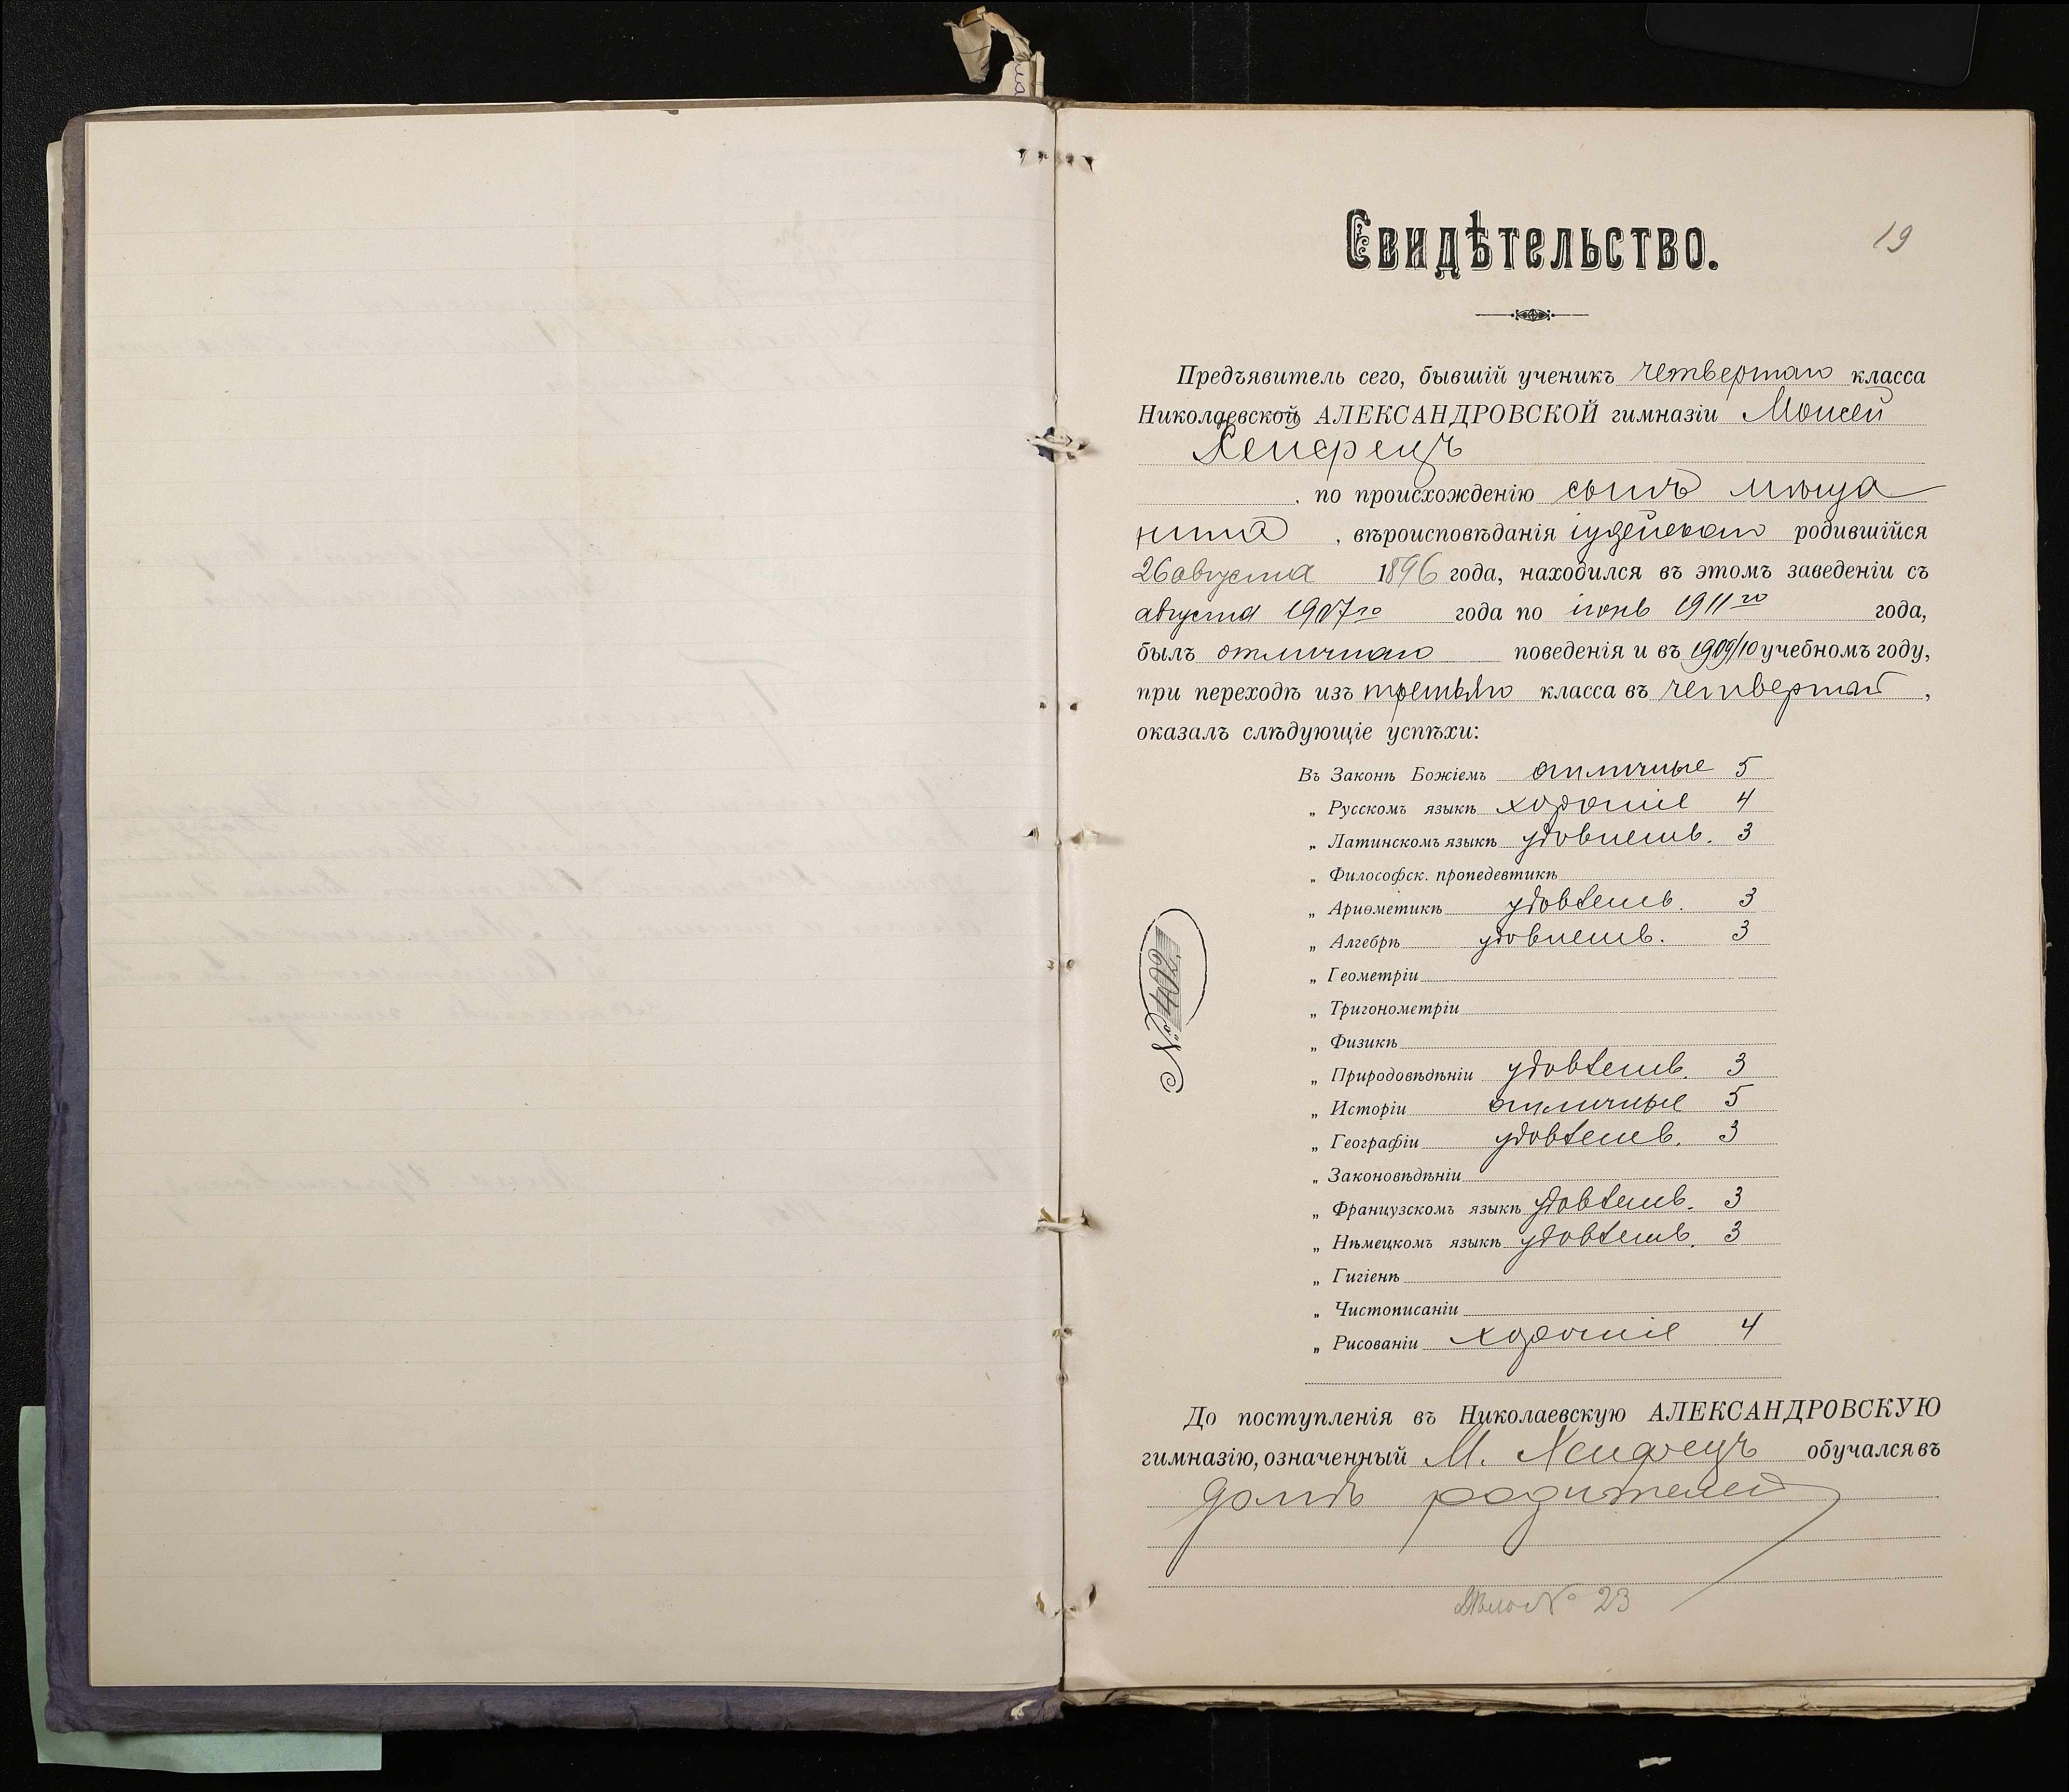 19
Свидѣтельство.
Предъявитель сего, бывшій ученикъ четвертаго класса
Николаевской АЛЕКСАНДРОВСКОЙ гимназіи Моисей
Хейфецъ
, по происхожденію сынъ мѣща
нина , вѣроисповѣданія іудейскаго родившійся
26 августа 1896 года, находился въ этомъ заведеніи съ
августа 1907го года по іюнь 1911го года,
былъ отличнаго поведенія и въ 1909/10 учебномъ году,
при переходѣ изъ третьяго класса въ четвертый ,
оказалъ слѣдующіе успѣхи:
Въ Законѣ Божіемъ отличные 5
„ Русскомъ языкѣ хорошіе 4
„ Латинскомъ языкѣ удовлетв. 3
„ Философск. пропедевтикѣ
„ Ариѳметикѣ удовлетв. 3
„ Алгебрѣ удовлетв. 3
„ Геометріи
„ Тригонометріи
„ Физикѣ
„ Природовѣдѣніи удовлетв. 3
„ Исторіи отличные 5
„ Географіи удовлетв. 3
„ Законовѣдѣніи
„ Французскомъ языкѣ удовлетв. 3
„ Нѣмецкомъ языкѣ удовлетв. 3
„ Гигіенѣ
„ Чистописаніи
„ Рисованіи хорошіе 4
№ 402
До поступленія въ Николаевскую АЛЕКСАНДРОВСКУЮ
гимназію, означенный М. Хейфецъ обучался въ
домѣ родителей
Дѣло № 23